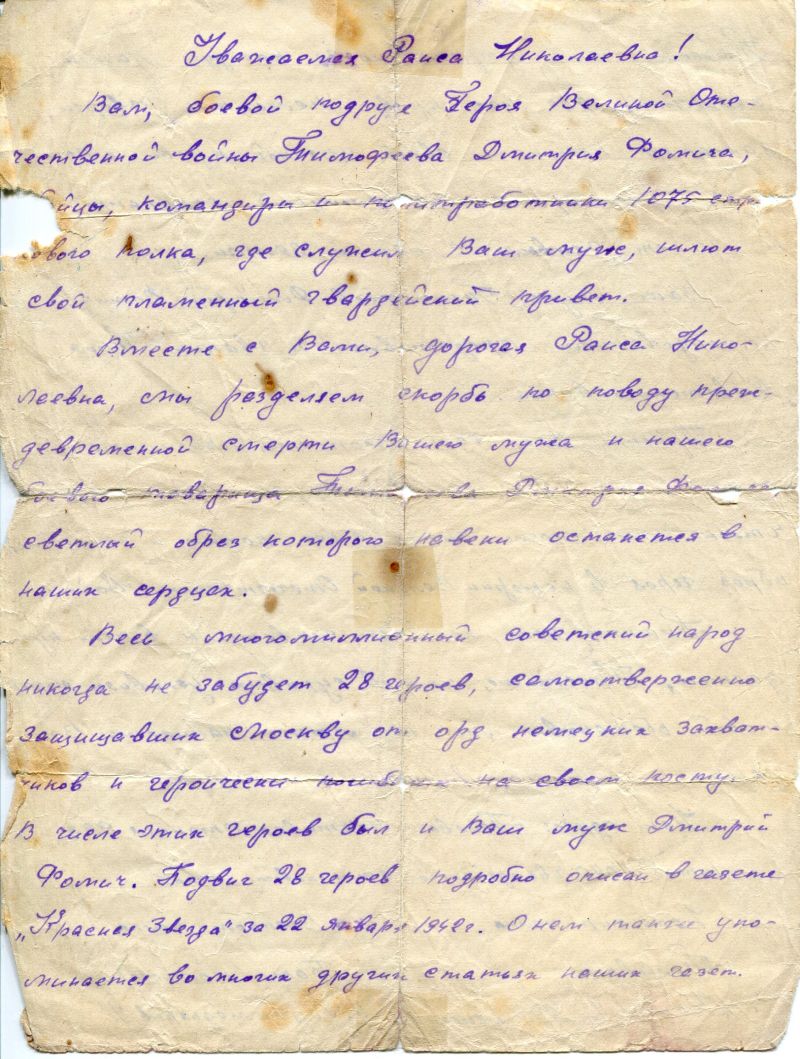 Уважаемая Раиса Николаевна!
Вам, боевой подруге Героя Великой Оте-
чественной войны Тимофеева Дмитрия Фомича,
командиры и политработники 1075
ового полка, где служил Ваш муж, шлют
свой пламенный гвардейский привет.
Вместе с Вами, дорогая Раиса Нико-
лаевна, мы разделяем скорбь по поводу преж-
девременной смерти Вашего мужа и нашего
боевого товарища Дмитрия
светлый образ которого навеки останется в
наших сердцах.
Весь многомиллионный советский народ
никогда не забудет 28 героев, самоотверженно
защищавших Москву от орд немецких захват-
чиков и героически погибших на своем посту.
В числе этих героев был и Ваш муж Дмитрий
Фомич. Подвиг 28 героев подробно описан в газете
„Красная Звезда" за 22 января 1942г. О нем также упо-
минается во многих других статьях наших газет.